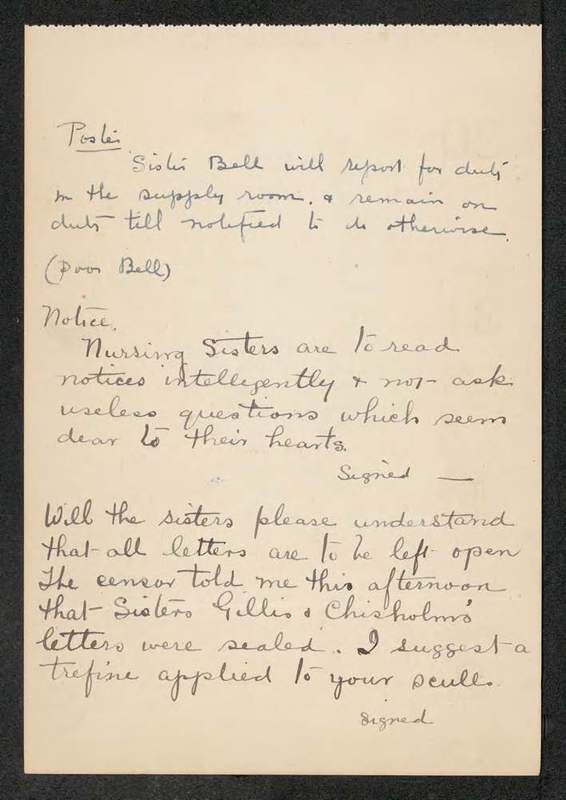 Poster
Sister Bell will report for duty
in the supply room. & remain on
duty till notified to do otherwise.
(Poor Bell)
Notice.
Nursing Sisters are to read
notices intelligently & not ask
useless questions which seem
dear to their hearts.
Signed —
Will the sisters please understand
that all letters are to be left open
The censor told me this afternoon
that Sisters Gillis & Chisholm's
letters were sealed. I suggest a
trefine applied to your scull.
signed